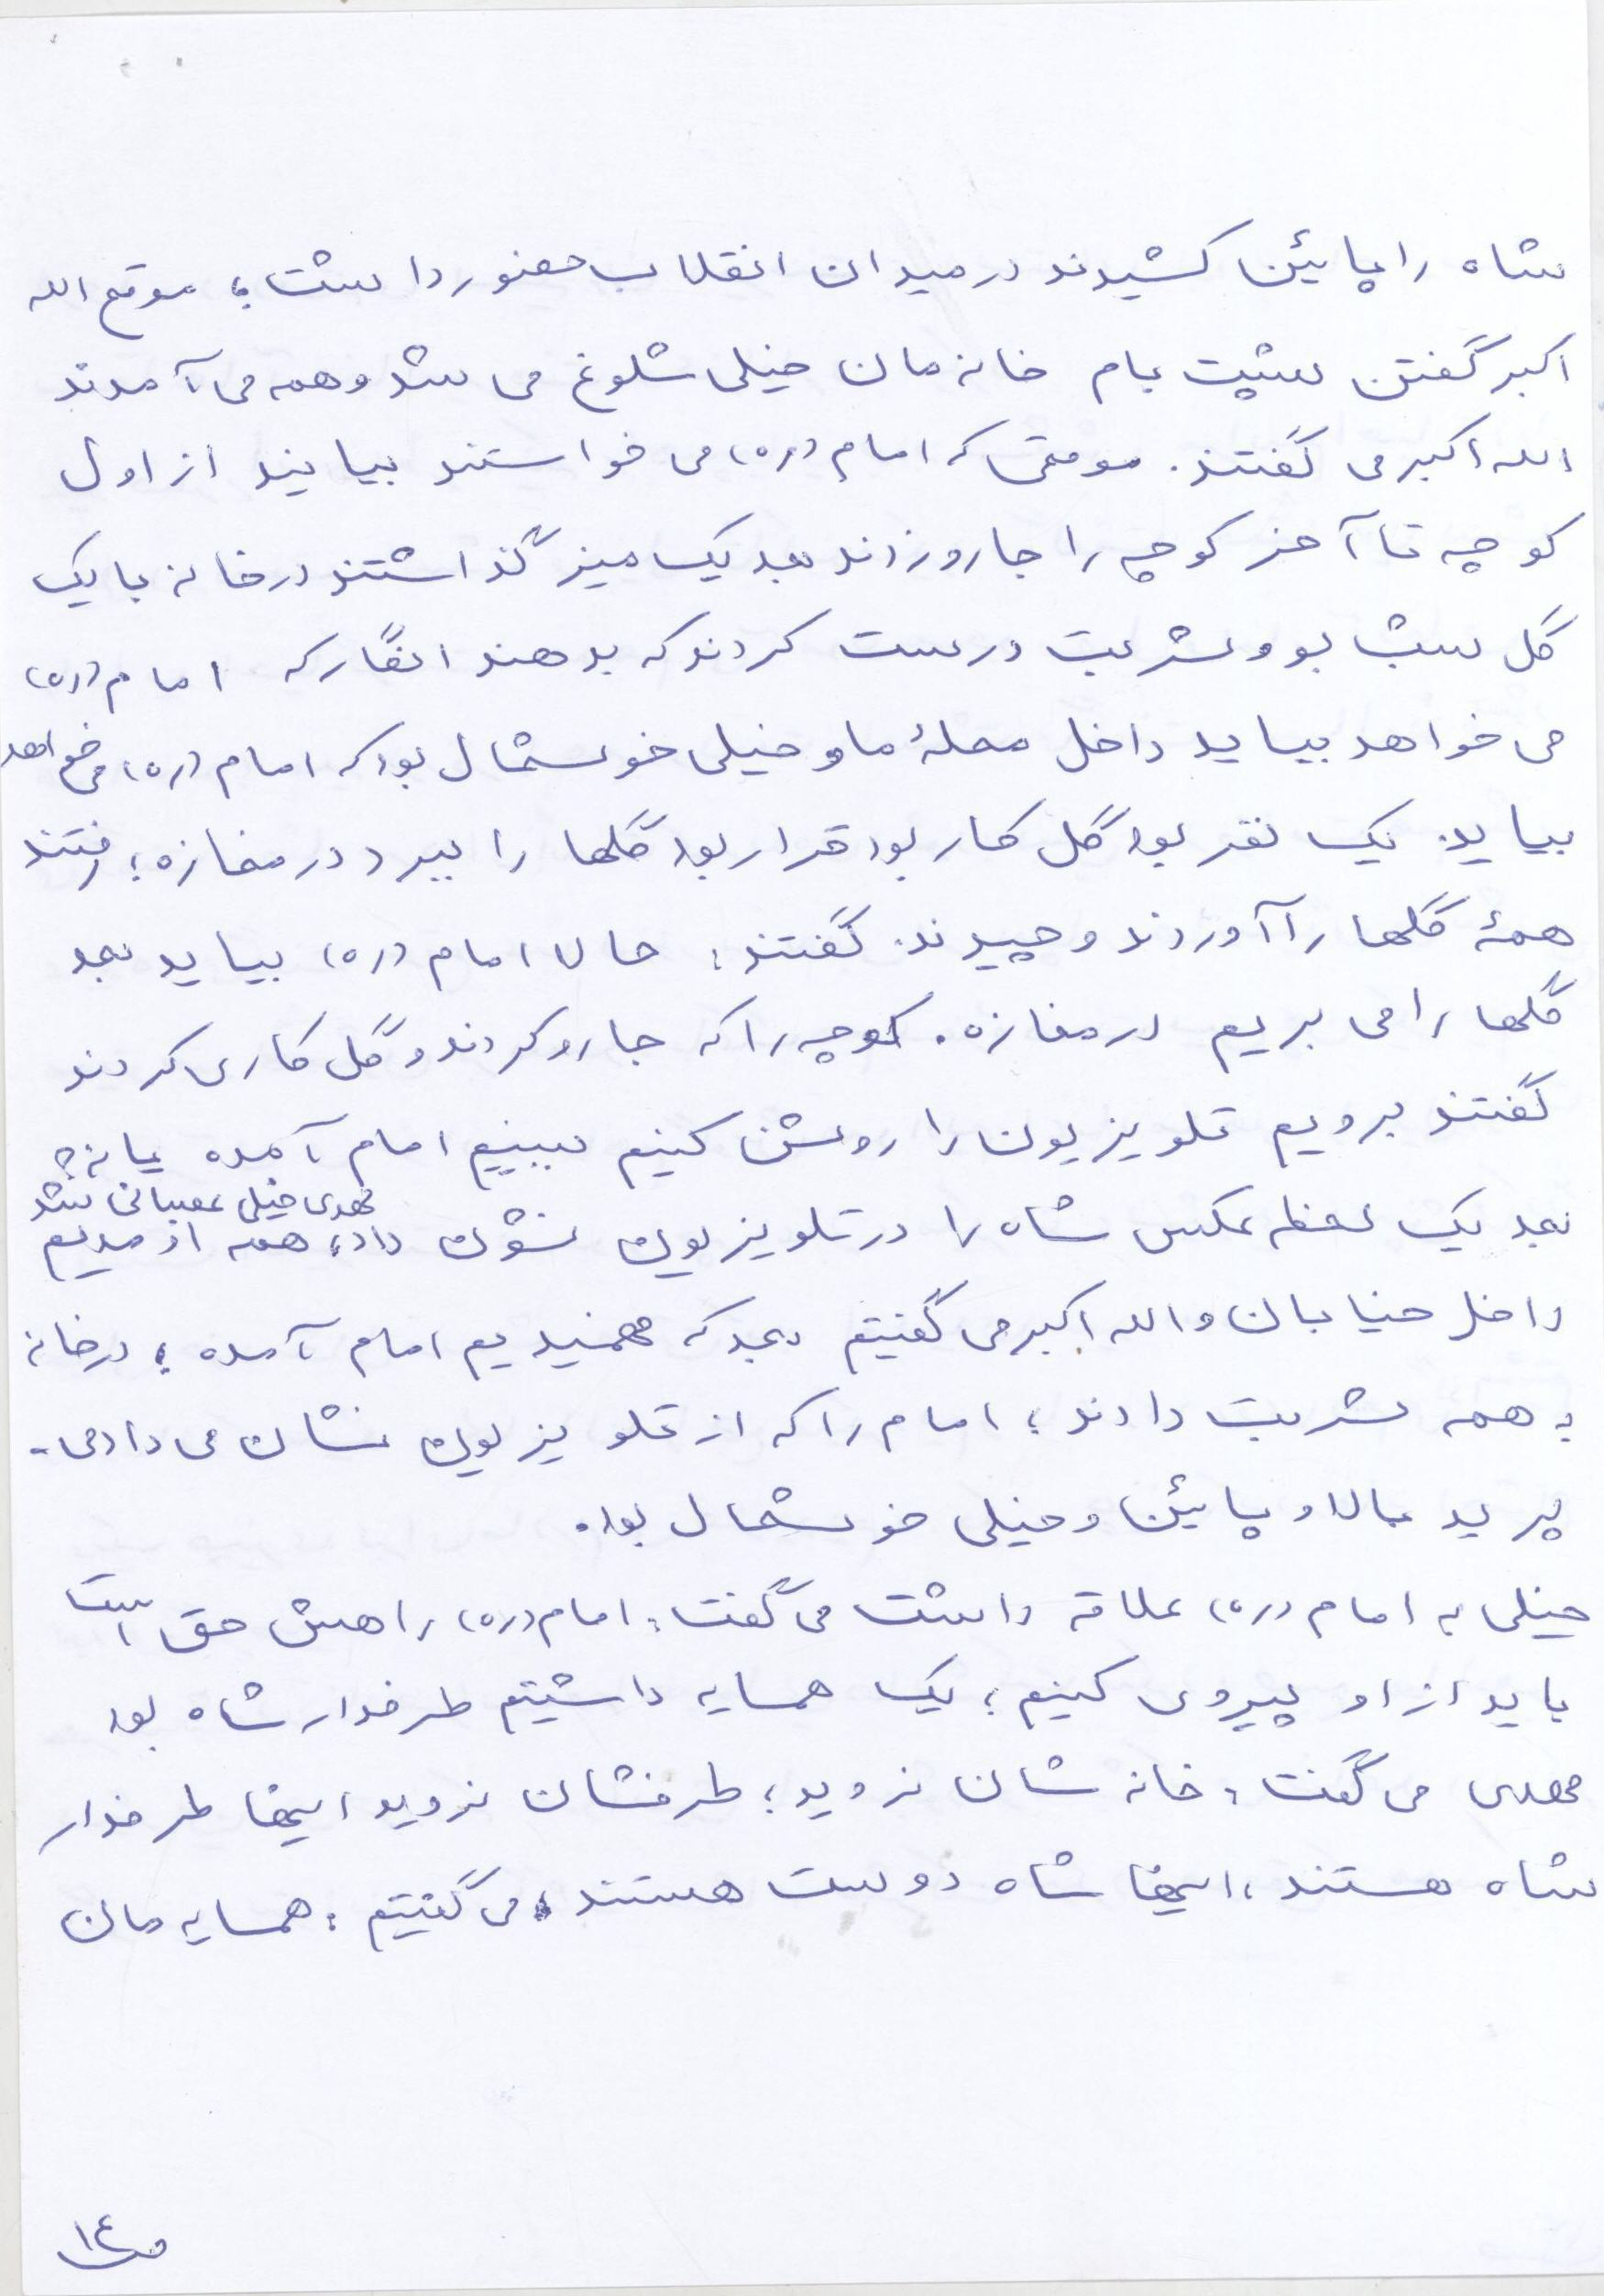 شاه را پائین کشیدند در میدان انقلاب حضور داشت؛ موقع الله
اکبر گفتن پشت بام خانه مان خیلی شلوغ می شد و همه می آمدند
الله اکبر می گفتند. موقعی که امام (ره) می خواستند بیایند از اول
کوچه تا آخر کوچه را جارو زدند بعد یک میز گذاشتند در خانه با یک
گل شب بو و شربت درست کردند که بدهند انگار که امام (ره)
می خواهد بیاید داخل محلۀ ما و خیلی خوشحال بود که امام (ره) می خواهد
بیاید. یک نفر بود گل کار بود قرار بود گلها را ببرد در مغازه؛ رفتند
همۀ گلها را آوردند و چیدند. گفتند: حالا امام (ره) بیاید بعد
گلها را می بریم در مغازه. کوچه را که جارو کردند و گل کاری کردند
گفتند برویم تلویزیون را روشن کنیم ببینیم امام آمده یا نه؟
بعد یک لحظه عکس شاه را در تلویزیون نشون داد، مهدی خیلی عصبانی شد همه اومدیم
داخل خیابان و الله اکبر می گفتیم بعد که فهمیدیم امام آمده؛ در خانه
به همه شربت دادند؛ امام را که از تلویزیون نشان می دادمی-
پرید بالا و پائین و خیلی خوشحال بود.
خیلی به امام (ره) علاقه داشت می گفت: امام (ره) راهش حق است
باید از او پیروی کنیم؛ یک همسایه داشتیم طرفدار شاه بود
مهدی می گفت: خانه شان نروید؛ طرفشان نروید اینها طرفدار
شاه هستند، اینها شاه دوست هستند، می گفتیم: همسایه مان
ص۱۴